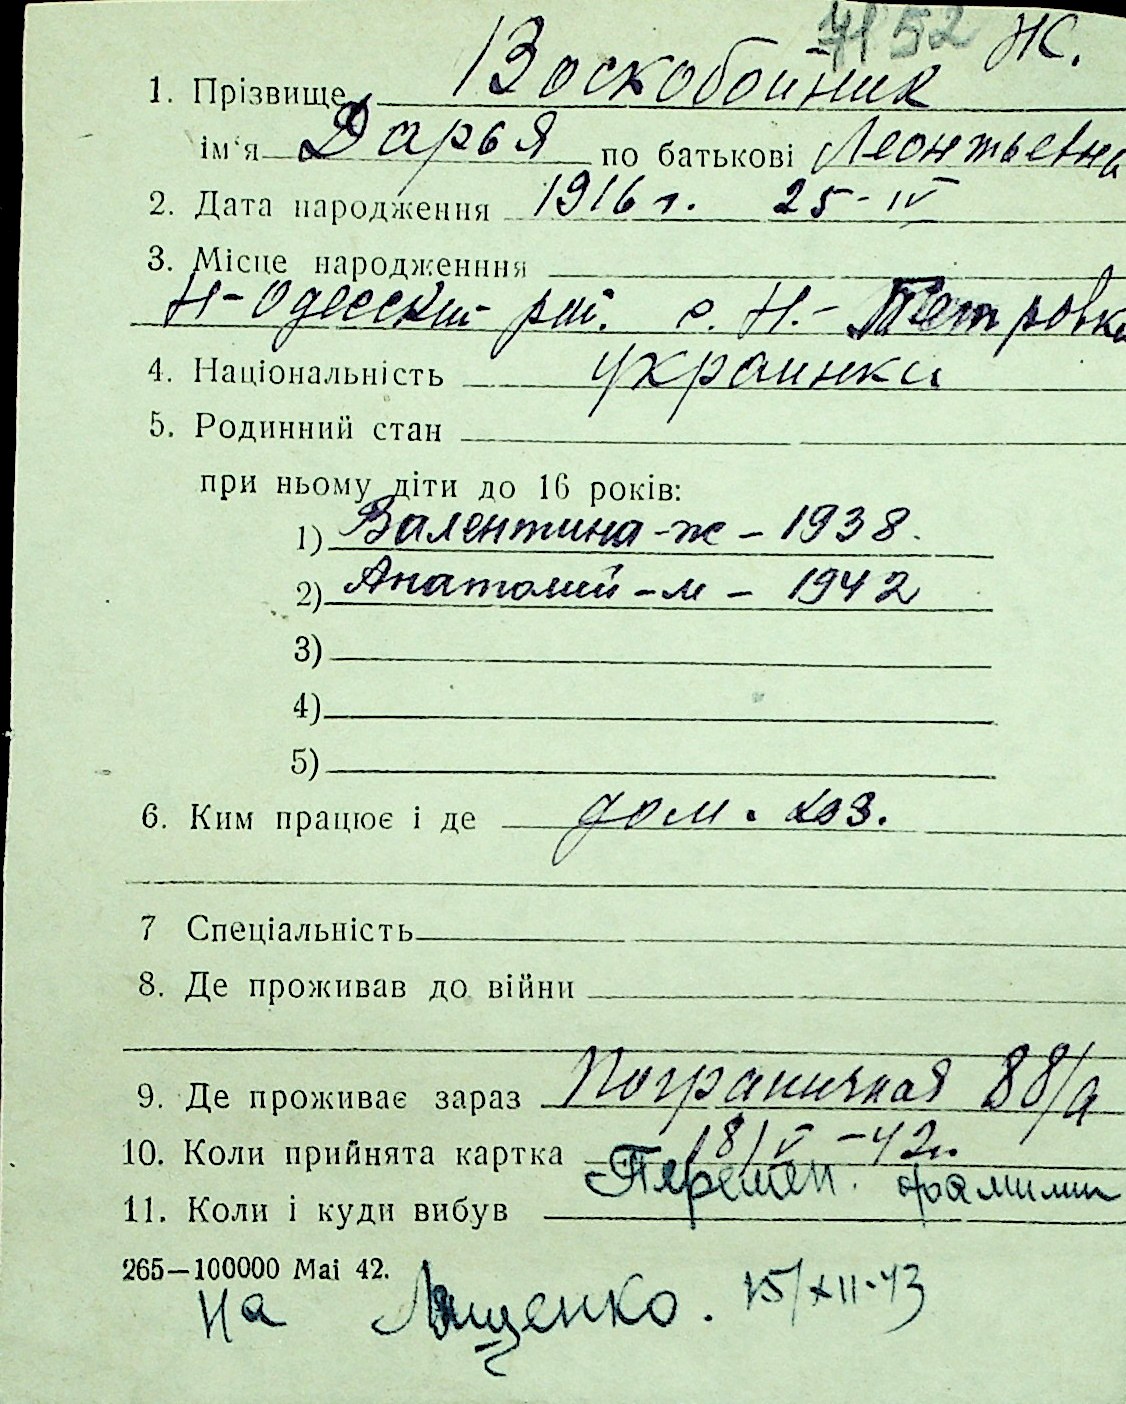 7152 Ж.
1. Прізвище Воскобойник
ім'я Дарья по батькові Леонтьевна
2. Дата народження 1916 г. 25-IV
3. Місце народженння
Н-Одесский рай. с. Н.-Петровка
4. Національність украинка
5. Родинний стан
при ньому діти до 16 років:
1) Валентина-ж-1938.
2) Анатолий-м-1942
3)
4)
5)
6. Ким працює і де дом. хоз.
7 Спеціальність
8. Де проживав до війни
9. Де проживає зараз Пограничная 88/а
10. Коли прийнята картка 18/V-42г.
Перемен. фамилии
11. Коли і куди вибув
265—100000 Mai 42.
на Лященко. 15/XII-43